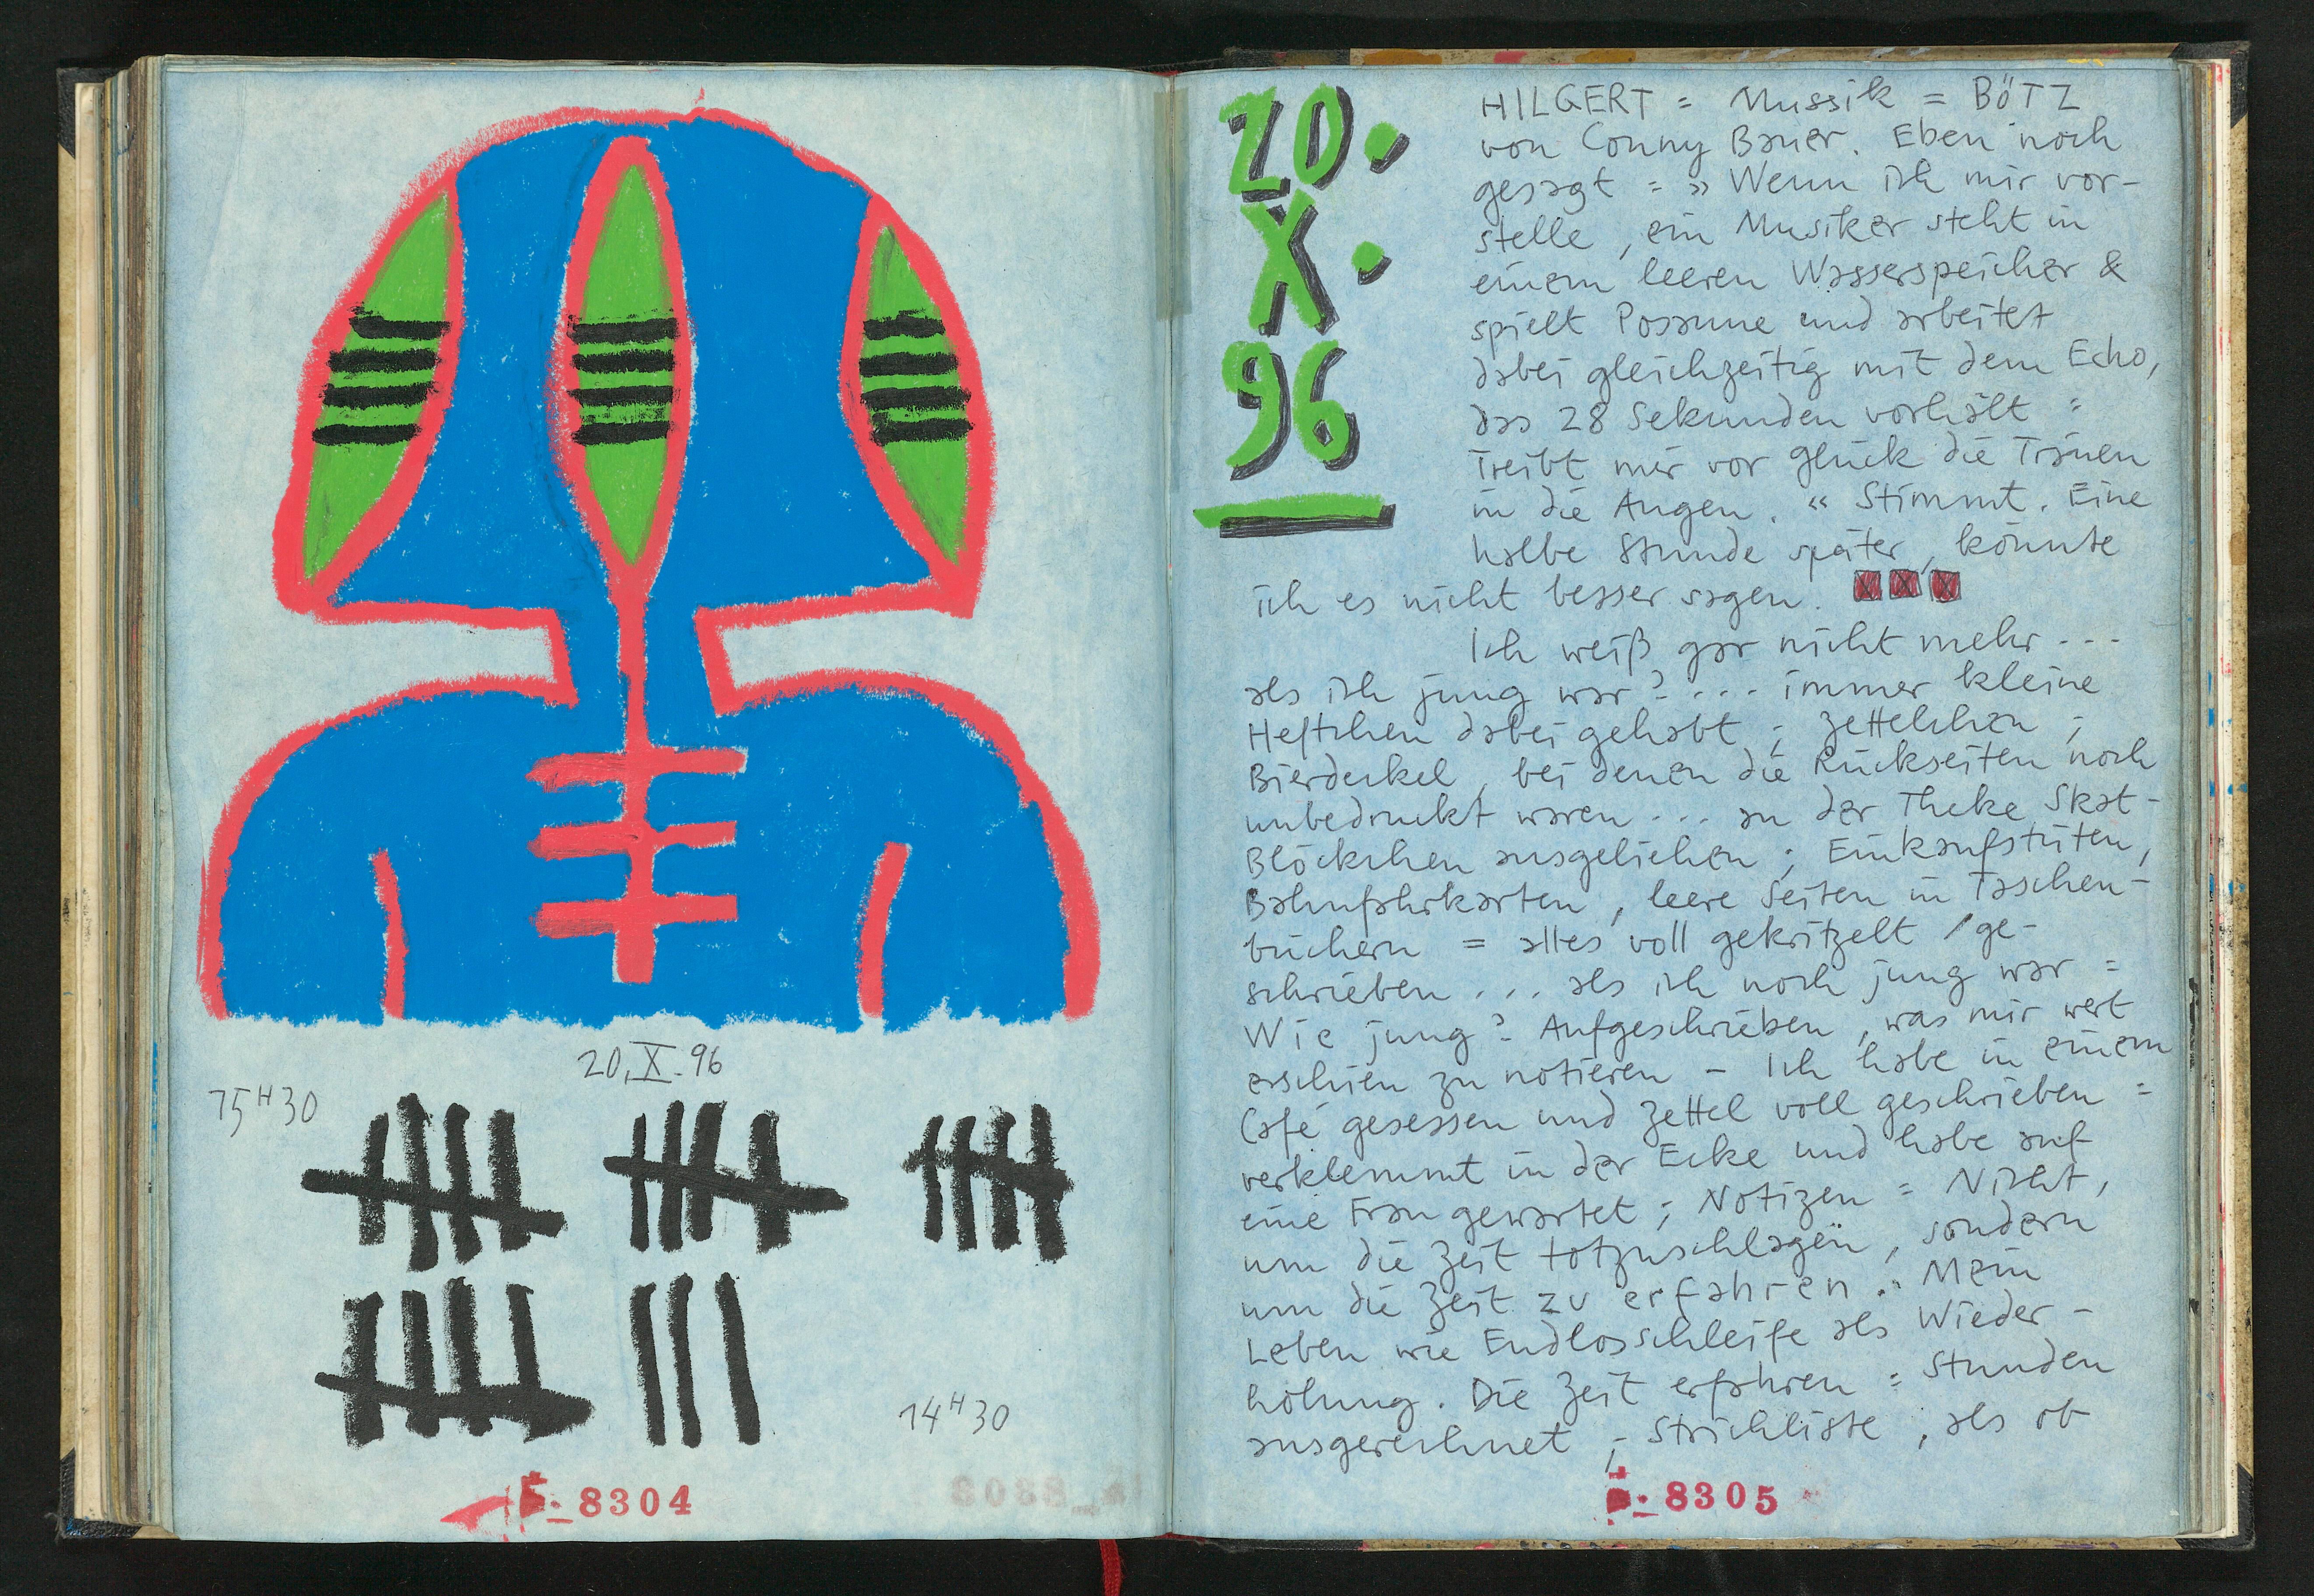 20.X.96
15H30
14H30
8304
20.
X.
96
HILGERT = Mussik = BÖTZ
von Conny Bauer. Eben noch
gesagt = » Wenn ich mir vor-
stelle, ein Musiker steht in
einem leeren Wasserspeicher &
spielt Posaune und arbeitet
dabei gleichzeitig mit dem Echo,
das 28 Sekunden vorhält =
Treibt mir vor Glück die Tränen
in die Augen. « Stimmt. Eine
halbe Stunde später, könnte
ich es nicht besser sagen.
Ich weiß gar nicht mehr ...
als ich jung war? ... immer kleine
Heftchen dabei gehabt ; Zettelchen ;
Bierdeckel, bei denen die Rückseiten noch
unbedruckt waren ... an der Theke Skat-
Blöckchen ausgeliehen ; Einkaufstüten,
Bahnfahrkarten, leere Seiten in Taschen-
büchern = alles voll gekritzelt / ge-
schrieben ... als ich noch jung war =
Wie jung? Aufgeschrieben, was mir wert
erschien zu notieren – Ich habe in einem
Café gesessen und Zettel voll geschrieben =
verklemmt in der Ecke und habe auf
eine Frau gewartet ; Notizen = Nicht,
um die Zeit totzuschlagen, sondern
um die Zeit zu erfahren. Mein
Leben wie Endlosschleife als Wieder-
holung. Die Zeit erfahren = Stunden
ausgerechnet ; Strichliste, als ob
8305